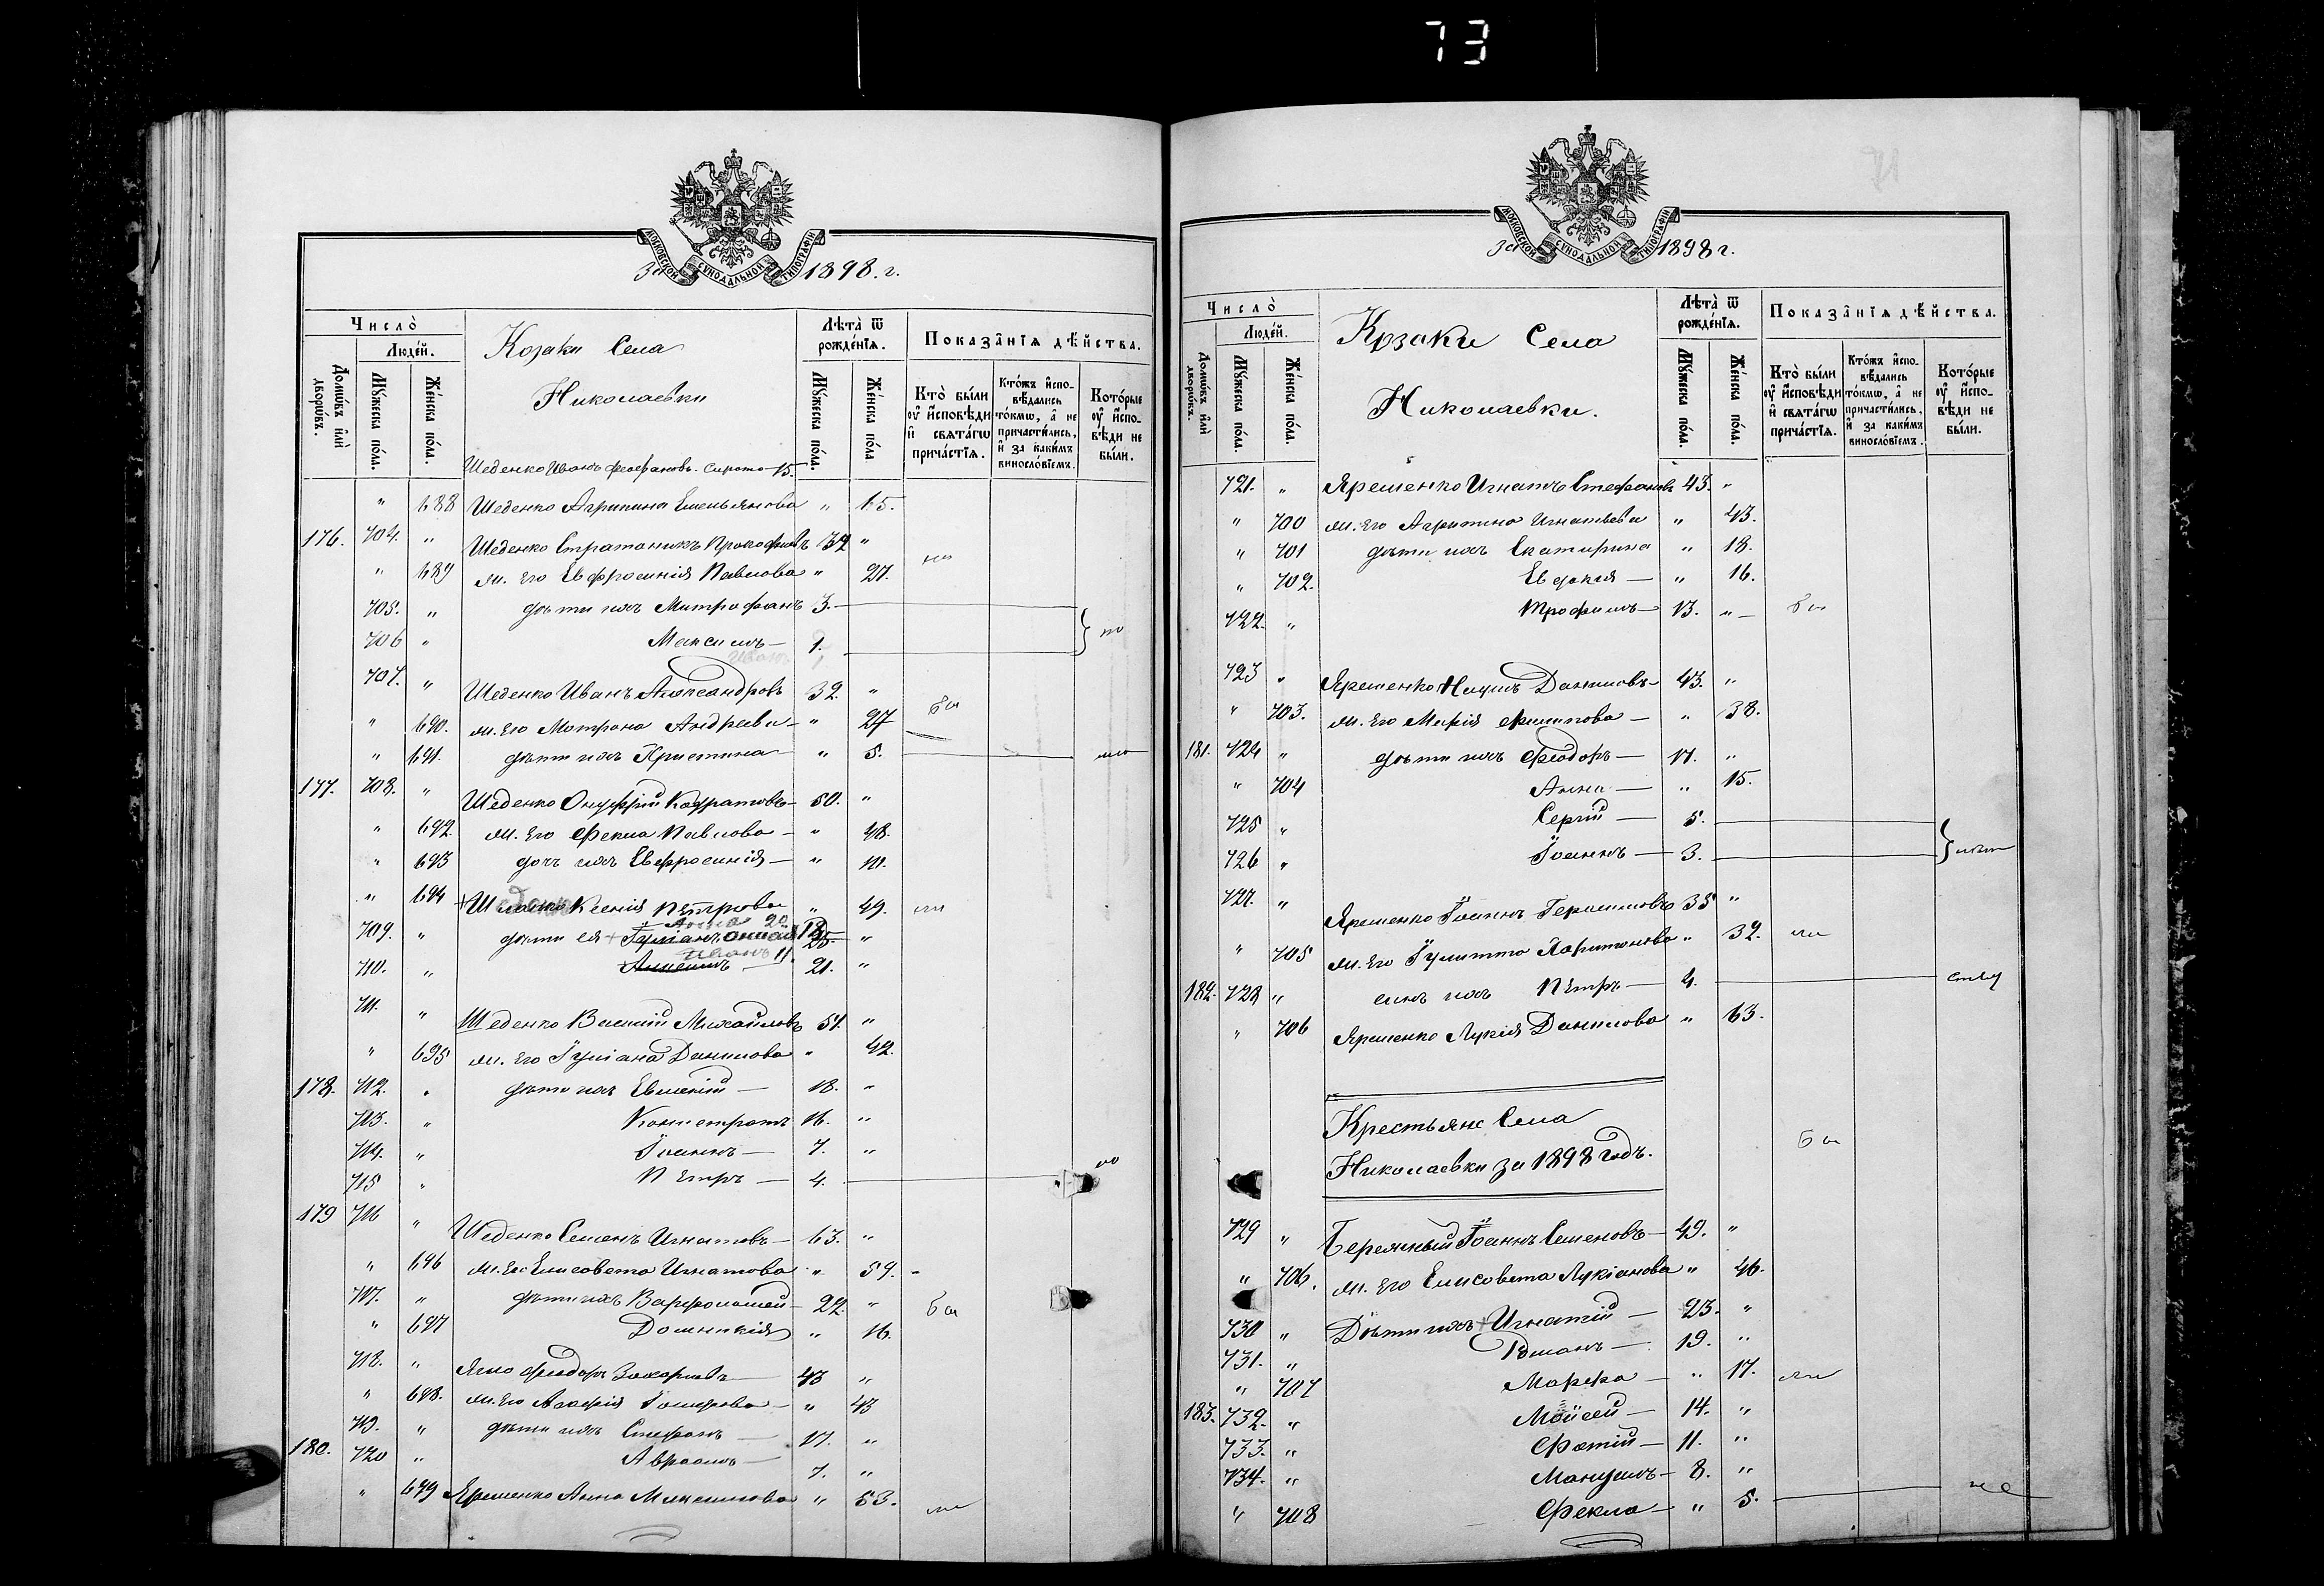 73
71
МОСКОВСКОЙ СУНОДАЛЬНОЙ ТИПОГРАФІИ
За 1898. г.
Число̀
Людей.
Домѡвъ и҆лѝ дворѡвъ.
Мꙋ́жеска по́ла.
Же́нска по́ла.
Козаки Села
Николаевки
Лѣта̀ ѿ рожде́нїѧ.
Мꙋ́жеска по́ла.
Же́нска по́ла
Показа̑нїѧ дѣ́йства.
Кто̀ бы́ли ᲂу҆ и҆сповѣди и҆ свѧта́гѡ прича́стїѧ.
Кто́жъ и҆спо-вѣдались то́кмѡ, а҆ не причасти́лись, и҆ за каки́мъ винословїемъ.
Кото́рые ᲂу҆ и҆спо-вѣди не бы́ли.
Шеденко Иванъ Феофановъ. Сирота 15.
" 688 Шеденко Агрипина Емельянова " 15.
176. 704. " Шеденко Стратоникъ Прокофіевъ 34 "
" 689 ж. его Евфросинія Павлова " 27.
705. " дѣти ихъ Митрофанъ 3.
706 " Максимъ 1.
Иванъ
707. " Шеденко Иванъ Александровъ 32. "
" 690. ж. его Матрона Андреева " 27
" 691. дѣти ихъ Христина " 5.
177. 708. " Шеденко Онуфрій Кодратовъ 50. "
" 692. ж. его Фекла Павлова " 48.
" 693 дочь ихъ Евфросинія "
" 694 Ксенія Петрова " 49.
Анна 20
709. " дѣти ея 25. "
Иванъ 11.
710. " 21. "
711. " Шеденко Василій Михайловъ 51. "
" 695 ж. его Іуліана Данилова " 42.
178. 712. " дѣти ихъ Евменій 18. "
713. " 16. "
714. " Іоаннъ 7. "
715 " Петръ 4.
179 716 " Шеденко Семенъ Игнатовъ 63. "
" 696 ж. его Елисавета Игнатова " 59.
717. " дѣти ихъ Варфоломей 22. "
" 697 Домникія " 16.
718. " Ѳеодоръ Захаріевъ 43 "
" 698. ж. его Агафія " 43
719. " дѣти ихъ Стефанъ 17. "
180. 720 " Авраамъ 7. "
" 699 Яременко Анна Максимова " 53.
За 1898 г.
Число̀
Людей.
Домѡвъ и҆лѝ дворѡвъ.
Мꙋ́жеска по́ла.
Же́нска по́ла.
Козаки Села
Николаевки.
Лѣта̀ ѿ рожде́нїѧ.
Мꙋ́жеска по́ла.
Же́нска по́ла.
Показа̑нїѧ дѣ́йства.
Кто̀ бы́ли ᲂу҆ и҆сповѣди и҆ свѧта́гѡ прича́стїѧ.
Кто́жъ и҆спо-вѣдались то́кмѡ, а҆ не причасти́лись, и҆ за каки́мъ винословїемъ.
Кото́рые ᲂу҆ и҆спо-вѣди не бы́ли.
721. " Яременко Игнатъ Стефановъ 43. "
" 700 ж. его Агрипина Игнатьева " 43.
" 701 дѣти ихъ Екатерина " 18.
" 702. Евдокія " 16.
722. " Трофимъ 13. "
723 " Яременко Наумъ Даниловъ 43. "
" 703. ж. его Марія Филиппова " 38.
181. 724 " дѣти ихъ Феодоръ 17. "
" 704 Анна " 15.
725 " Сергій 5.
726 " Іоаннъ 3.
727. " Яременко Іоаннъ Герасимовъ 35 "
" 705 ж. его Іулитта Харитонова " 32.
182. 728 " сынъ ихъ Петръ 4.
" 706 Яременко Лукія Данилова " 63.
Крестьяне Села
Николаевки за 1898 годъ.
729 " Бережный Іоаннъ Семеновъ 49. "
" 706. ж. его Елисавета Лукіанова " 46.
730 " Дѣти ихъ Игнатій 23. "
731. " Романъ 19. "
" 707 Марфа " 17.
183. 732. " Мойсей 14. "
733. " Фотій 11. "
734. " Мануилъ 8. "
" 708 Фекла " 5.